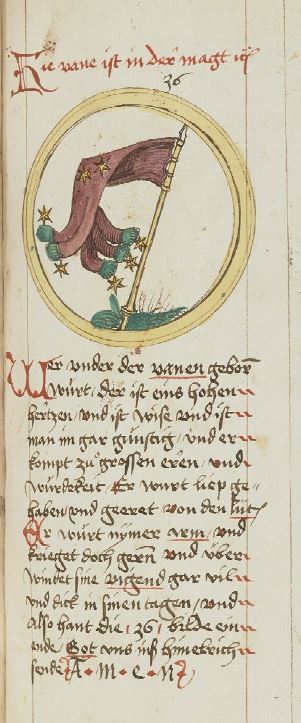 Die vane ist in der magt ist
36
Wer vnder der vanen geborn
würt, der ist eins hohen
hertzen, vnd ist wise vnd ist
man im gar günstig, vnd er
kompt zů grossen eren, vnd
würdekeit, Er würt liep ge-
haben, vnd geeret von den lüt,
Er würt nÿmer arm, vnd
krieget doch gern vnd über
windet sine vigend gar vil
vnd dick in sinen tagen, vnd
Also hant die 36 bilde ein
ende, Got vns inß himelrich
sende A • M • E • N